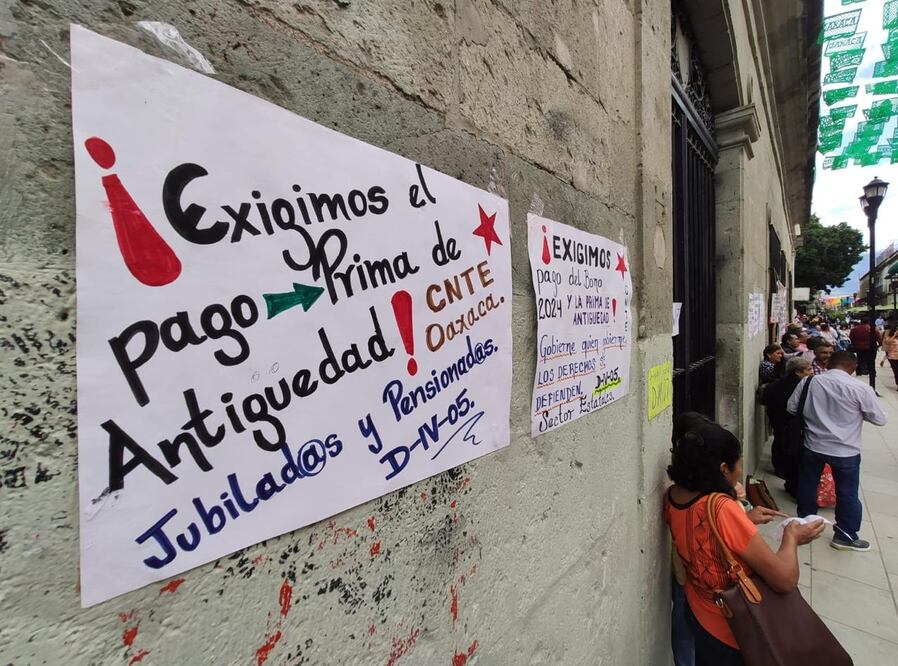 ¡Exigimos el
pago → Prima de
Antigüedad!
CNTE
Oaxaca.
Jubilad@s y Pensionad@s.
D-IV-05.
¡EXIGIMOS
pago del Bono
2024 Y LA PRIMA DE
ANTIGUEDAD !
Gobierne quien gobierne,
LOS DERECHOS SE
DEFIENDEN. D-IV-05.
Sector Estatales.
OAXACA